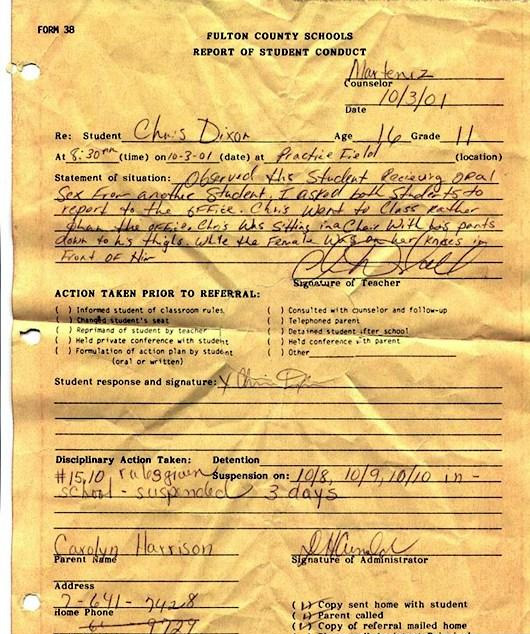 FORM 38
FULTON COUNTY SCHOOLS
REPORT OF STUDENT CONDUCT
Marteniz
Counselor
10/3/01
Date
Re: Student Chris Dixon Age 16 Grade 11
At 8:30 pm (time) on 10-3-01 (date) at Practice Field (location)
Statement of situation: Observed this Student Recieving oral
Sex From another Student, I asked both Students to
report to the office. Chris Went to Class Rather
than the office. Chris Was Sitting in a Chair With his pants
down to his thighs. While the Female Was on her knees in
Front of Him
Signature of Teacher
ACTION TAKEN PRIOR TO REFERRAL:
( ) Informed student of classroom rules ( ) Consulted with counselor and follow-up
( ) Changed student's seat ( ) Telephoned parent
( ) Reprimand of student by teacher ( ) Detained student after school
( ) Held private conference with student ( ) Held conference with parent
( ) Formulation of action plan by student ( ) Other
(oral or written)
Student response and signature: X
Disciplinary Action Taken: Detention
#15,10 rules given Suspension on: 10/8, 10/9, 10/10 in -
school - suspended 3 days
Carolyn Harrison
Parent Name Signature of Administrator
Address
7-641-7428
Home Phone (✓) Copy sent home with student
9729 (✓) Parent called
(✓) Copy of referral mailed home